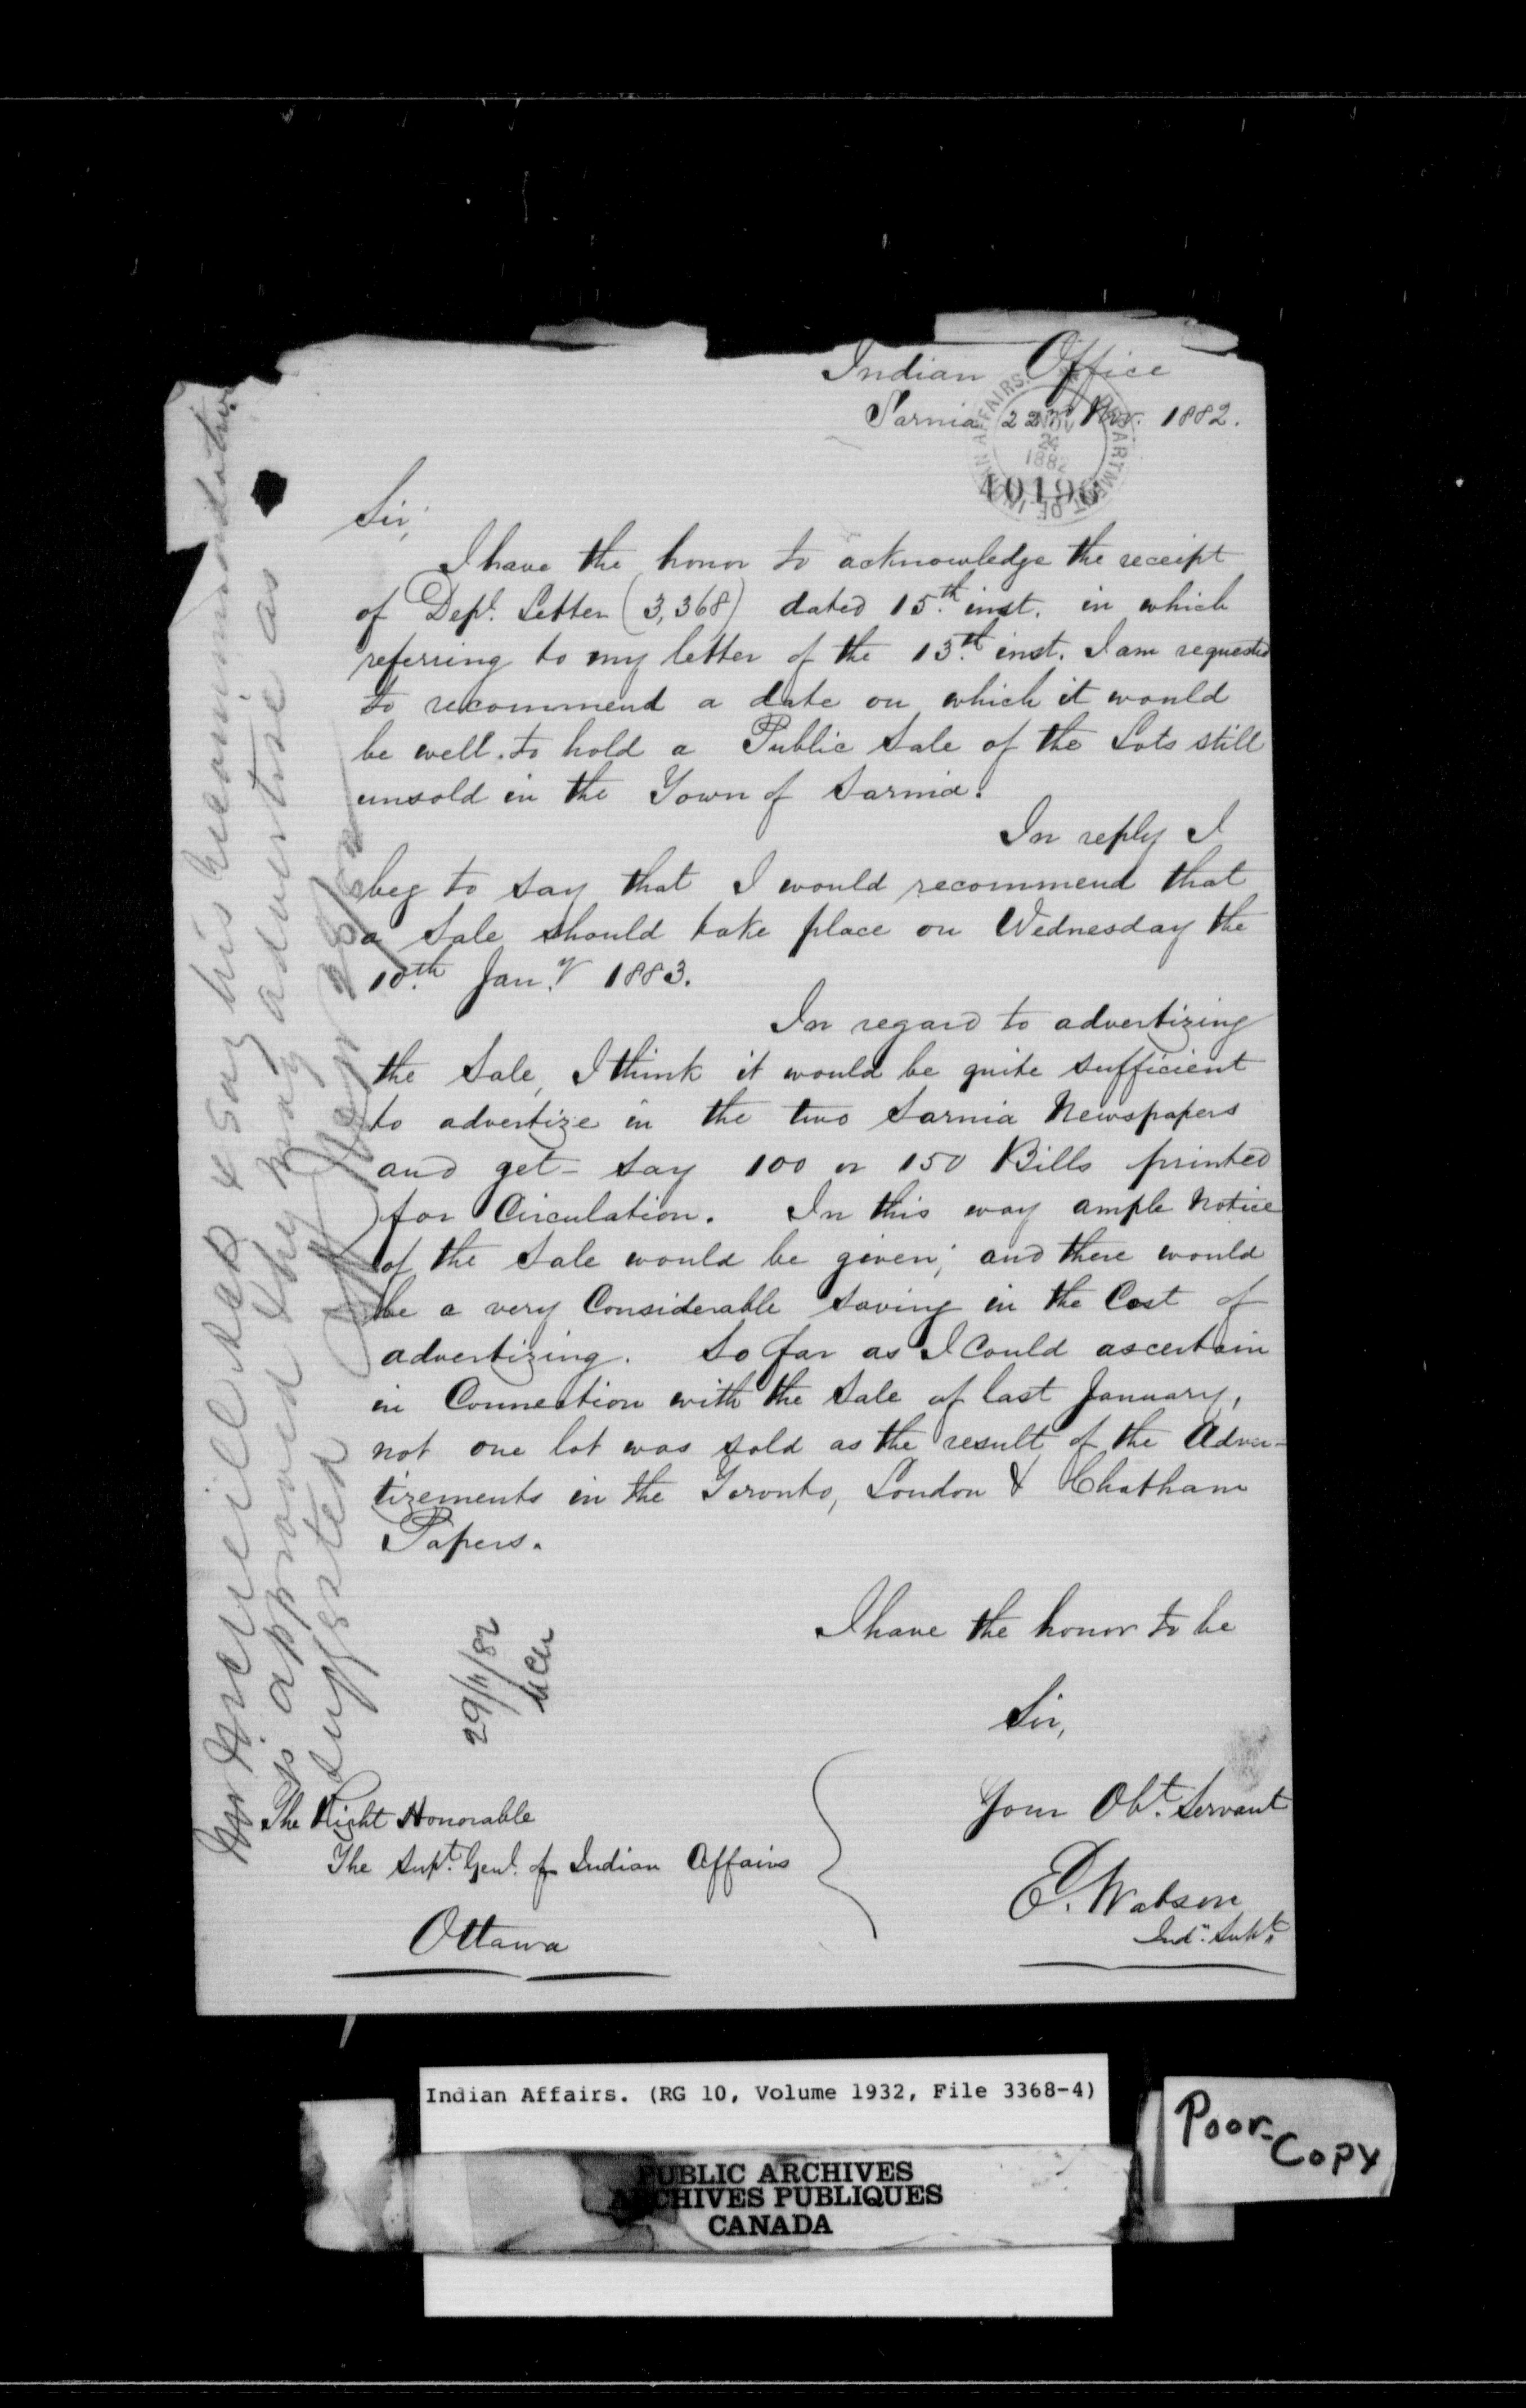 Indian Office
Sarnia 22nd Nov. 1882.
DEPARTMENT OF INDIAN AFFAIRS.
NOV
24
1882
40196
Sir,
I have the honor to acknowledge the receipt
of Dept. Letter (3,368) dated 15th inst. in which
referring to my letter of the 13th inst. I am requested
to recommend a date on which it would
be well to hold a Public Sale of the Lots still
unsold in the Town of Sarnia.
In reply I
beg to say that I would recommend that
a Sale should take place on Wednesday the
10th Jan.y 1883.
In regard to advertizing
the Sale, I think it would be quite sufficient
to advertize in the two Sarnia Newspapers
and get - say 100 or 150 Bills printed
for Circulation. In this way ample Notice
of the Sale would be given; and there would
be a very Considerable saving in the Cost of
advertizing. So far as I Could ascertain
in Connection with the Sale of last January,
not one lot was sold as the result of the Adver-
tizements in the Toronto, London & Chatham
Papers.
I have the honor to be
Sir,
Your Obt. Servant
E. Watson
Ind. Supt.
The Right Honorable
The Supt. Genl. of Indian Affairs
Ottawa
29/11/82
& say his recommendation
is approved & they may advertise as
suggested
Indian Affairs. (RG 10, Volume 1932, File 3368-4)
PUBLIC ARCHIVES
ARCHIVES PUBLIQUES
CANADA
Poor-
Copy